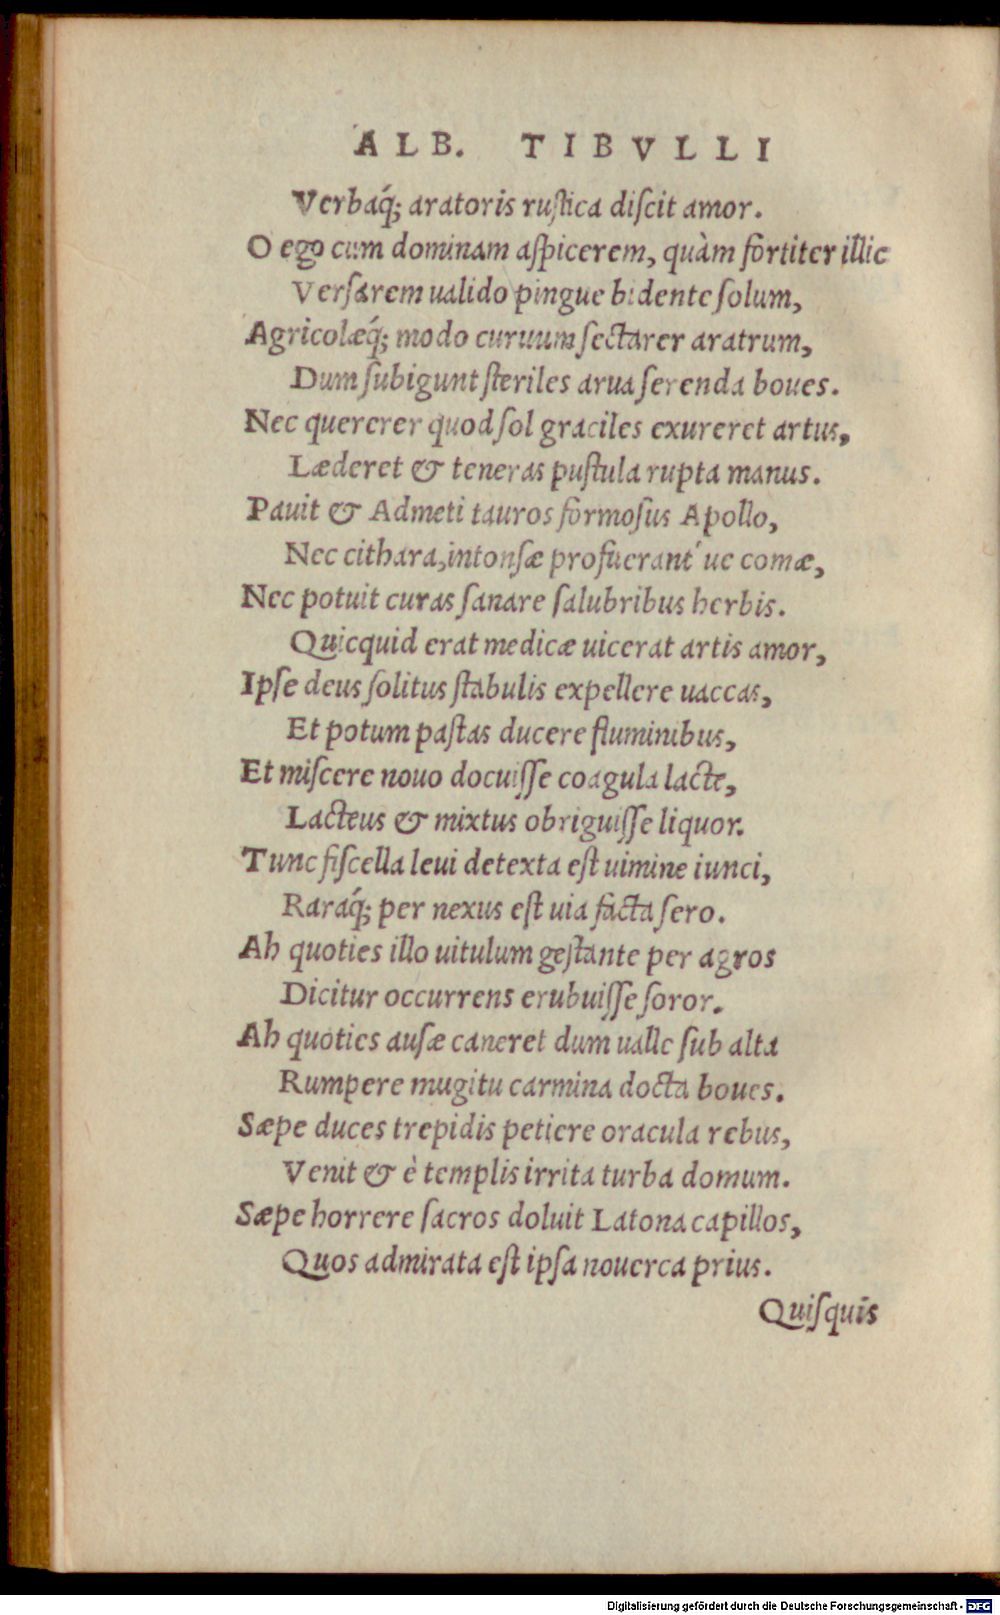 ALB. TIBVLLI
Verbaq́; aratoris ruſtica diſcit amor.
O ego cum dominam aſpicerem, quàm fortiter illic
Verſarem ualido pingue bidente ſolum,
Agricolæq́; modo curuum ſectarer aratrum,
Dum ſubigunt ſteriles arua ſerenda boues.
Nec quererer quod ſol graciles exureret artus,
Læderet & teneras puſtula rupta manus.
Pauit & Admeti tauros formoſus Apollo,
Nec cithara, intonſæ profuerant´ue comæ,
Nec potuit curas ſanare ſalubribus herbis.
Quicquid erat medicæ uicerat artis amor,
Ipſe deus ſolitus ſtabulis expellere uaccas,
Et potum paſtas ducere fluminibus,
Et miſcere nouo docuiſſe coagula lacte,
Lacteus & mixtus obriguiſſe liquor.
Tunc fiſcella leui detexta eſt uimine iunci,
Raraq́; per nexus eſt uia facta ſero.
Ah quoties illo uitulum geſtante per agros
Dicitur occurrens erubuiſſe ſoror.
Ah quoties auſæ caneret dum ualle ſub alta
Rumpere mugitu carmina docta boues.
Sæpe duces trepidis petiere oracula rebus,
Venit & è templis irrita turba domum.
Sæpe horrere ſacros doluit Latona capillos,
Quos admirata eſt ipſa nouerca prius.
Quiſquis
Digitalisierung gefördert durch die Deutsche Forschungsgemeinschaft - DFG